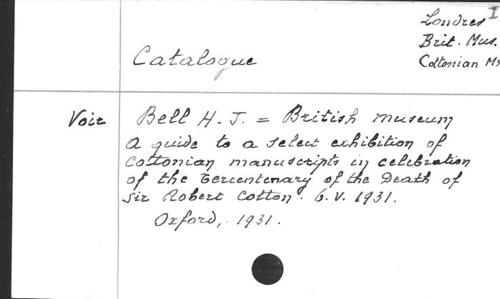 Londres I
Brit. Mus.
Catalogue
Cottonian Ms
Voir Bell H. J. = British museum
A guide to a select exhibition of
Cottonian manuscripts in celebration
of the tercentenary of the Death of
Sir Robert Cotton. 6. V. 1931.
Oxford, 1931.